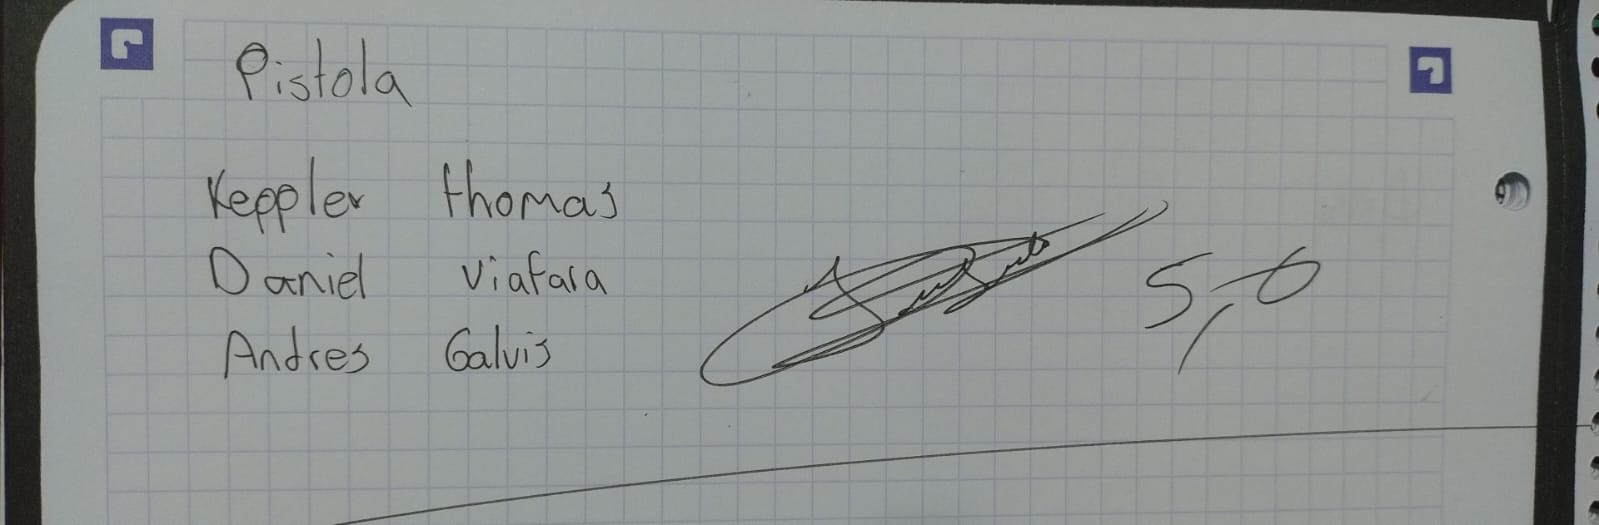 Pistola
Keppler thomas
Daniel Viafara
Andres Galvis
5,0